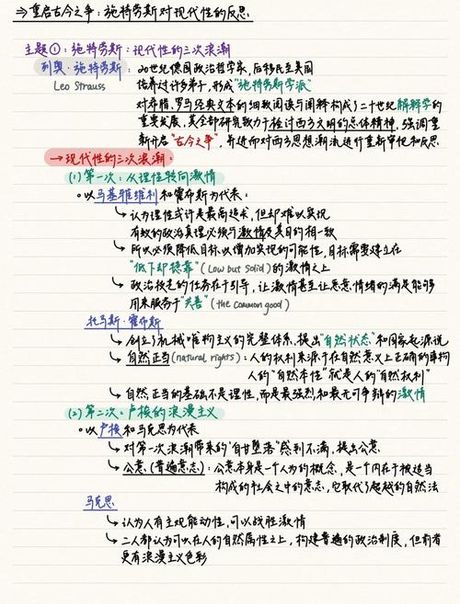 ⇒重启古今之争：施特劳斯对现代性的反思
主题①：施特劳斯：现代性的三次浪潮
列奥·施特劳斯：20世纪德国政治哲学家，后移民至美国
Leo Strauss 培养过许多弟子，形成"施特劳斯学派"
对希腊、罗马经典文本的细致阅读与阐释构成了二十世纪解释学的
重要发展，其全部研究致力于检讨西方文明的总体精神，强调重
新开启"古今之争"，并进而对西方思想潮流进行重新审视和反思
→现代性的三次浪潮：
(1)第一次：从理性转向激情
○以马基雅维利和霍布斯为代表：
↳认为理性或许是最高追求，但却难以实现
有效的政治真理必须与激情及其目的相一致
↳所以必须降低目标以增加实现的可能性，目标需要建立在
"低下却稳靠"(Low but solid)的激情之上
↳政治技艺的任务在于引导，让激情甚至让恶意情绪的满足能够
用来服务于"共善"(the common good)
托马斯·霍布斯
↳创立了机械唯物主义的完整体系，提出"自然状态"和国家起源说
↳自然正当(natural rights)：人的权利来源于在自然意义上正确的事物
人的"自然本性"就是人的"自然权利"
↳自然正当的基础不是理性，而是最强烈和最无可争辩的激情
(2)第二次：卢梭的浪漫主义
○以卢梭和马克思为代表
↳对第一次浪潮带来的"自甘堕落"感到不满，提出公意
↳公意(普遍意志)：公意本身是一个人为的概念，是一个内在于被适当
构成的社会之中的意志，它取代了超越的自然法
马克思
↳认为人有主观能动性，可以战胜激情
↳二人都认为可以在人的自然属性之上，构建普遍的政治制度，但前者
更有浪漫主义色彩